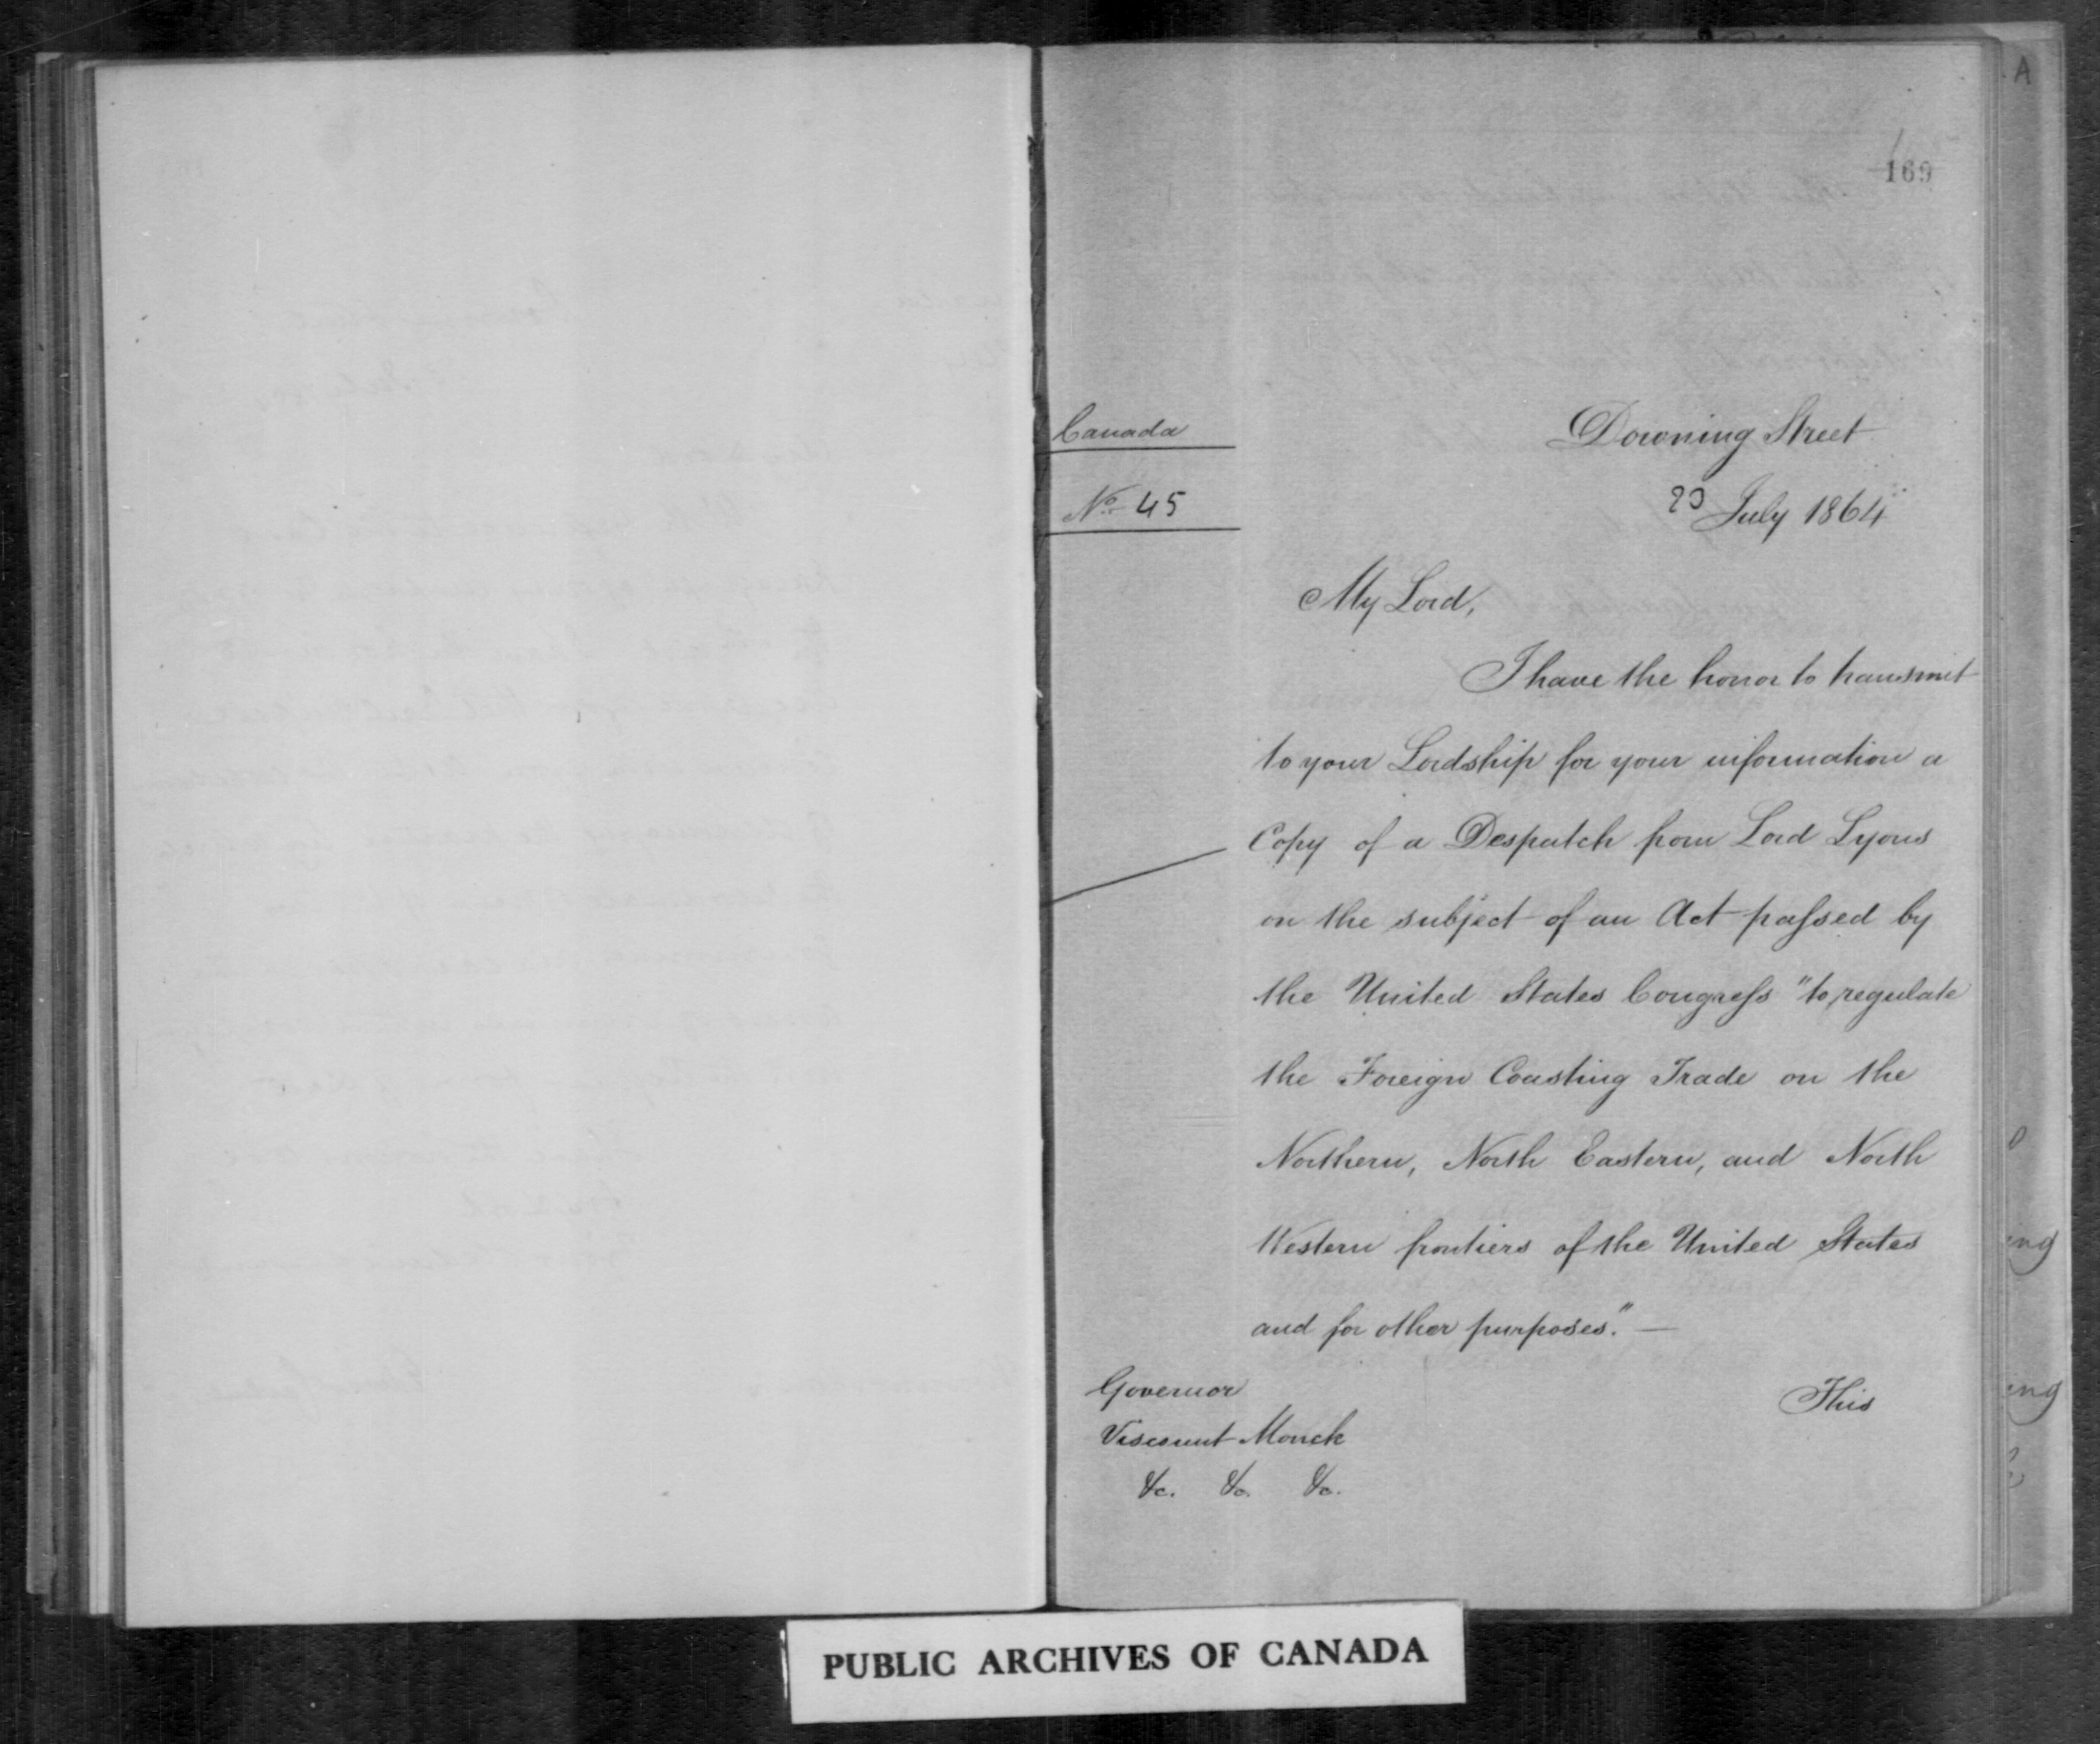 169
Canada
Downing Street
No 45
23 July 1864
My Lord,
I have the honor to transmit
to your Lordship for your information a
Copy of a Despatch from Lord Lyons
on the subject of an Act passed by
the United States Congress "to regulate
the Foreign Coasting Trade on the
Northern, North Eastern, and North
Western frontiers of the United States
and for other purposes." —
This
Governor
Viscount Monck
&c. &c. &c.
A
ing
ing
PUBLIC ARCHIVES OF CANADA